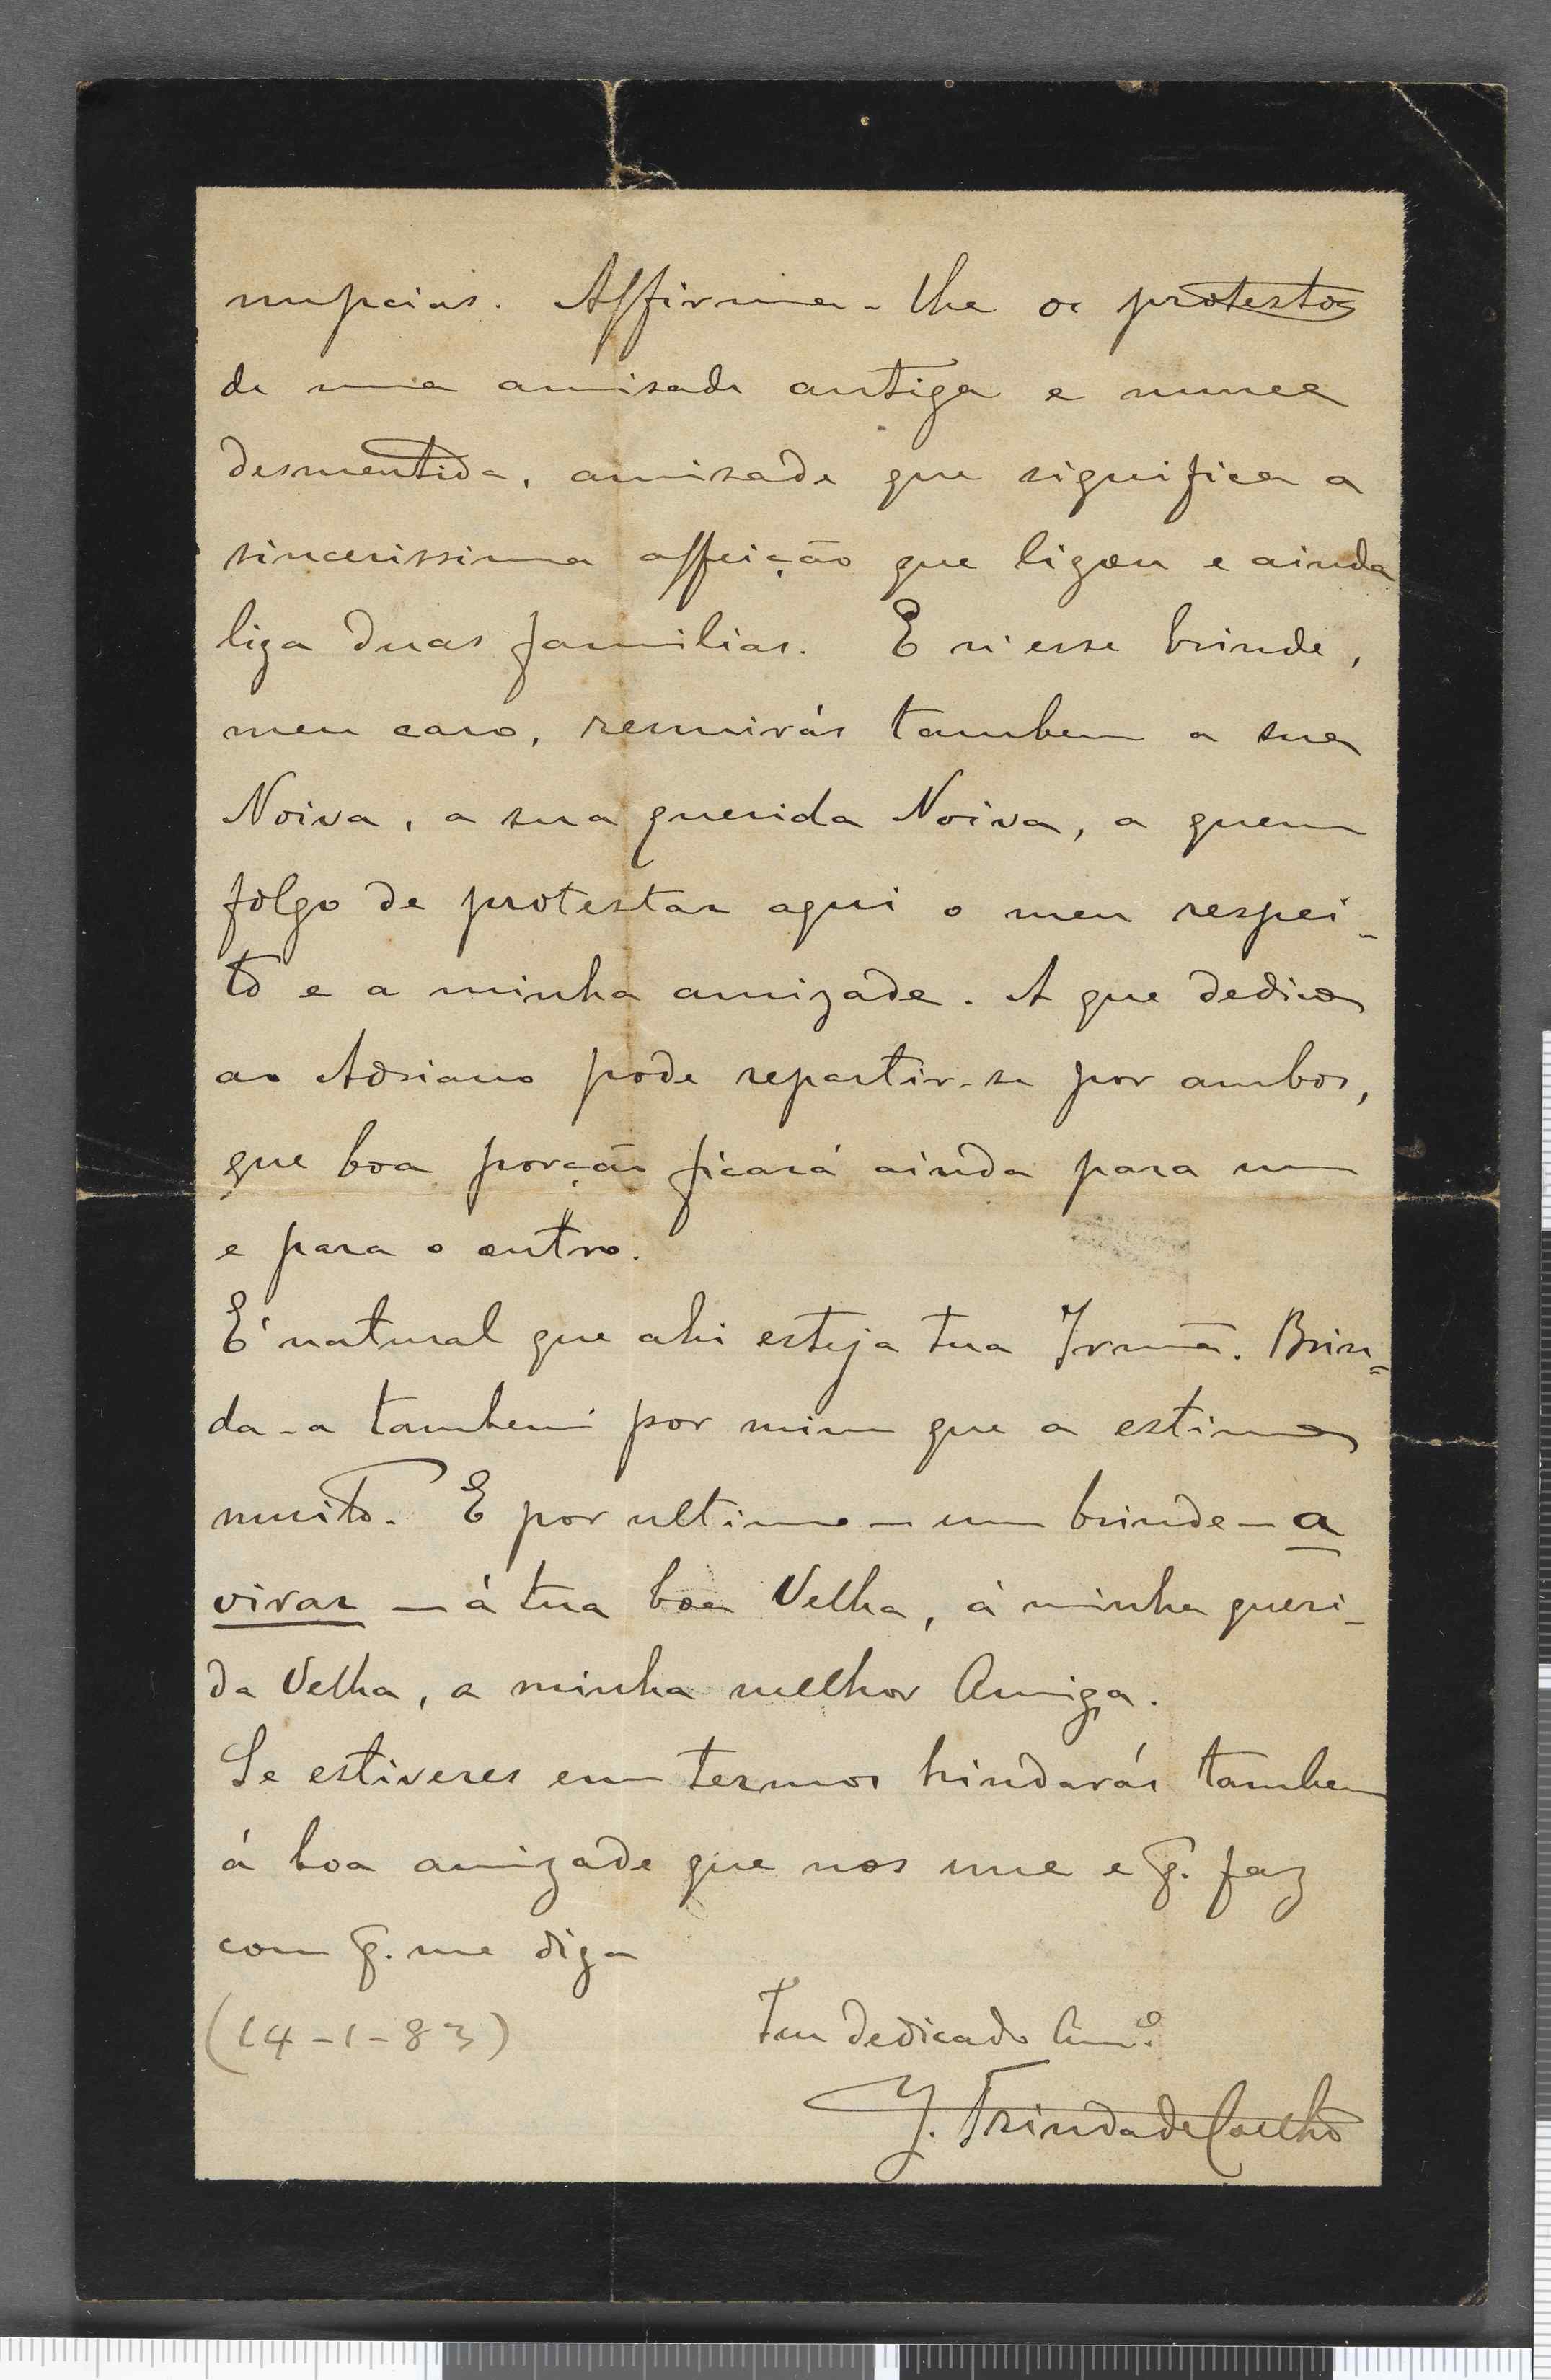 nupcias. Affirma-lhe os protestos
de uma amisade antiga e nunca
desmentida, amisade que significa a
sincerissima affeição que ligou e ainda
liga duas familias. E n'esse brinde,
meu caro, reunirás tambem a sua
Noiva, a sua querida Noiva, a quem
folgo de protestar aqui o meu respei-
to e a minha amizade. A que dedico
ao Adriano pode repartir-se por ambos,
que boa porção ficará ainda para um
e para o outro.
E' natural que ahi esteja tua Irmã. Brin=
da-a tambem por mim que a estimo
muito. E por ultimo — um brinde — a
virar — á tua boa Velha, á minha queri-
da Velha, a minha melhor Amiga.
Se estiveres em termos brindarás tambem
á boa amizade que nos une e q. faz
com q. me diga
(14-1-83) Teu dedicado Am.º
J. Trindade Coelho